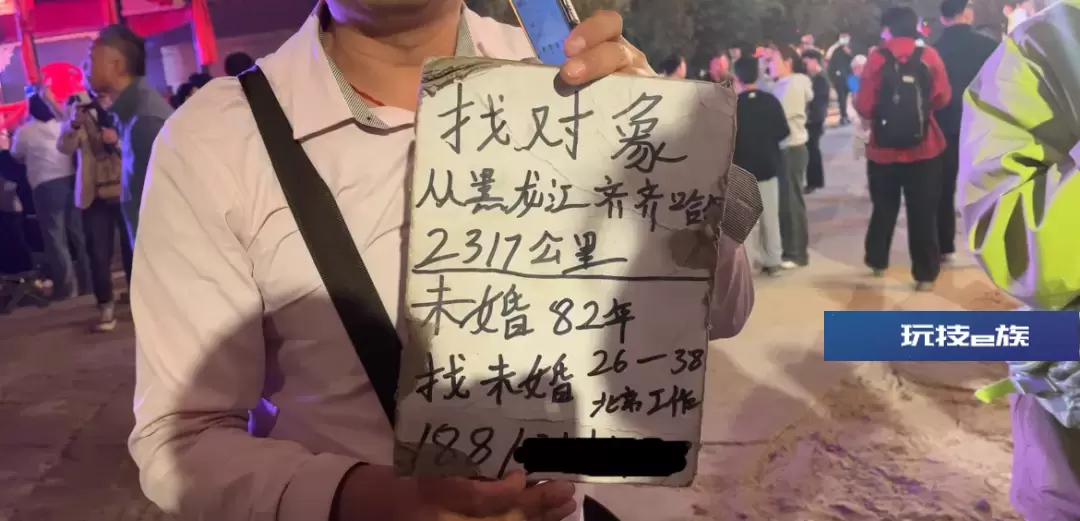 找对象
从黑龙江齐齐哈
2317公里
未婚82年
找未婚26-38
北京工作
1881
玩技e族